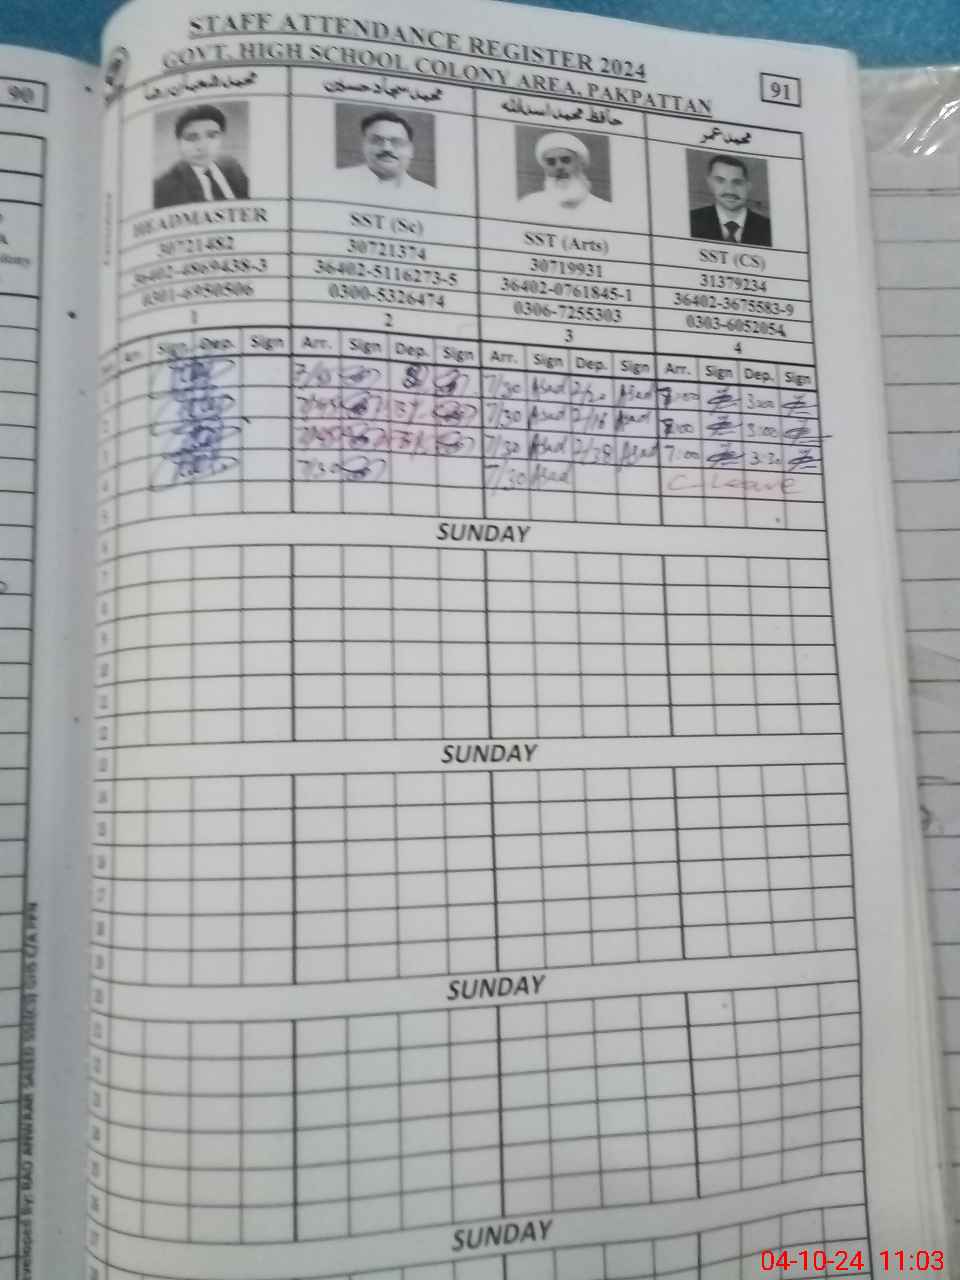 90
STAFF ATTENDANCE REGISTER 2024
GOVT. HIGH SCHOOL COLONY AREA, PAKPATTAN
91
محمد شعبان رضا محمد سجاد حسین حافظ محمد اسد اللہ محمد عمر
HEADMASTER SST (Sc) SST (Arts) SST (CS)
30721482 30721374 30719931 31379234
36402-4869438-3 36402-5116273-5 36402-0761845-1 36402-3675583-9
0301-6950506 0300-5326474 0306-7255303 0303-6052054
1 2 3 4
Arr. Sign Dep. Sign Arr. Sign Dep. Sign Arr. Sign Dep. Sign Arr. Sign Dep. Sign
7/30 Asad Asad 7:00 3:00
7/30 Asad 2/18 Asad 7:00 3:00
7/30 Asad 2/38 Asad 7:00 3:30
7/30 7/30 Asad C-Leave
SUNDAY
SUNDAY
SUNDAY
SUNDAY
04-10-24 11:03